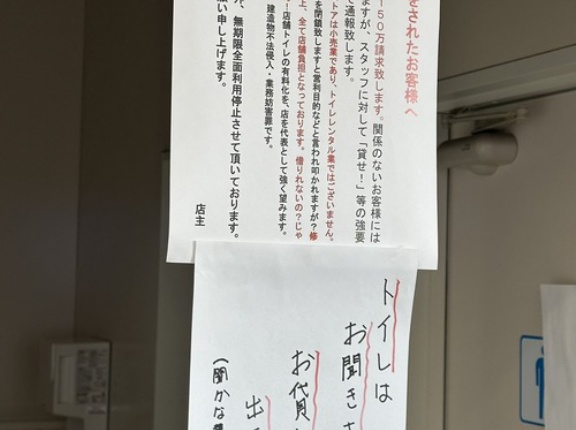 をされたお客様へ
150万請求致します。関係のないお客様には
ますが、スタッフに対して「貸せ！」等の強要
で通報致します。
トアは小売業であり、トイレレンタル業ではございません。
を閉鎖致しますと営利目的などと言われ叩かれますが？修
上、全て店舗負担となっております。借りれないの？じゃ
！店舗トイレの有料化を、店を代表として強く望みます。
建造物不法侵入・業務妨害罪です。
無期限全面利用停止させて頂いております。
願い申し上げます。
店主
トイレは
お聞きさ
お貸
出
（聞かな